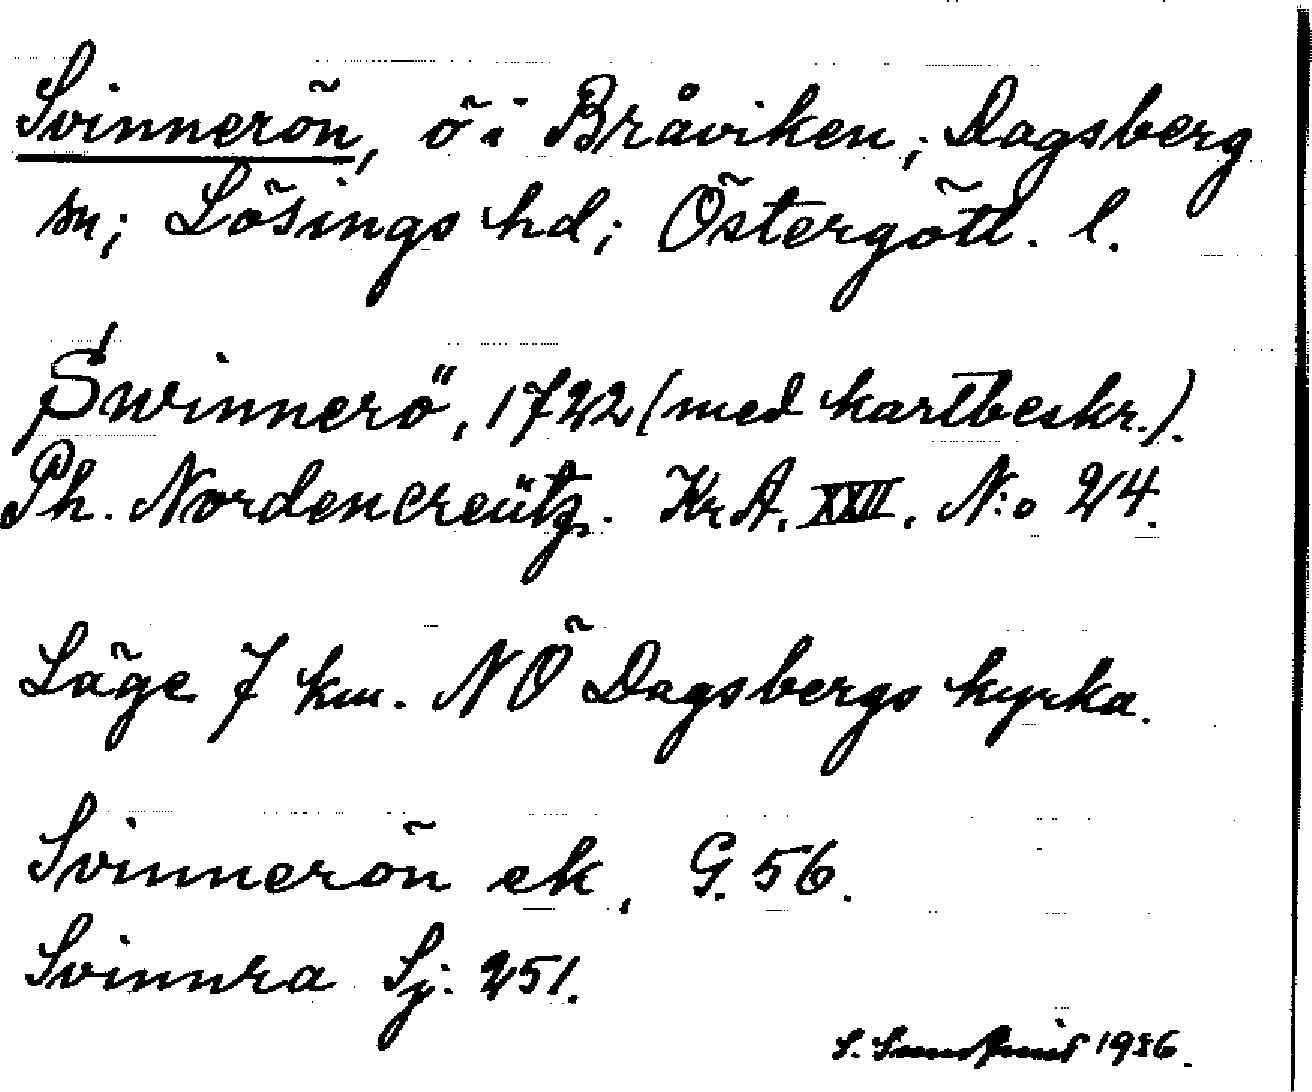 Svinnerön, ö i Bråviken; Dagsberg
sn; Lösings hd; Östergötl. l.
Swinnerö, 1722 (med kartbeskr.).
Ph. Nordencreütz. Kr. A. XXII. N:o 24.
Läge 7 km. NÖ Dagsbergs kyrka.
Svinnerön ek, G. 56.
Svinnra Sj. 251.
S. 1936.